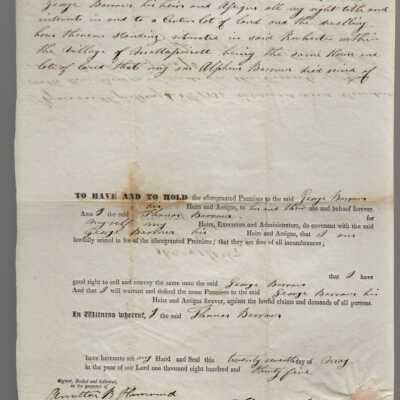 George Barrows his heirs and Assigns all my right title and
interest in and to a Certain lot of land and the dwelling
house thereon Standing situated in said Rochester within
the village of Mattapoisett being the same House and
lot of land that my son Alpheus Barrows died seized of
TO HAVE AND TO HOLD the aforegranted Premises to the said George Barrows
his Heirs and Assigns, to his and their use and behoof forever.
And I the said Thomas Barrows for
myself my Heirs, Executors and Administrators, do covenant with the said
George Barrows his Heirs and Assigns, that I am
lawfully seized in fee of the aforegranted Premises; that they are free of all incumbrances;
that I have
good right to sell and convey the same unto the said George Barrows
And that I will warrant and defend the same Premises to the said George Barrows his
Heirs and Assigns forever, against the lawful claims and demands of all persons.
In Witness whereof, I the said Thomas Barrows
have hereunto set my Hand and Seal this twenty seventh day of May
in the year of our Lord one thousand eight hundred and thirty five
Signed, Sealed and delivered,
in the presence of
B Hammond